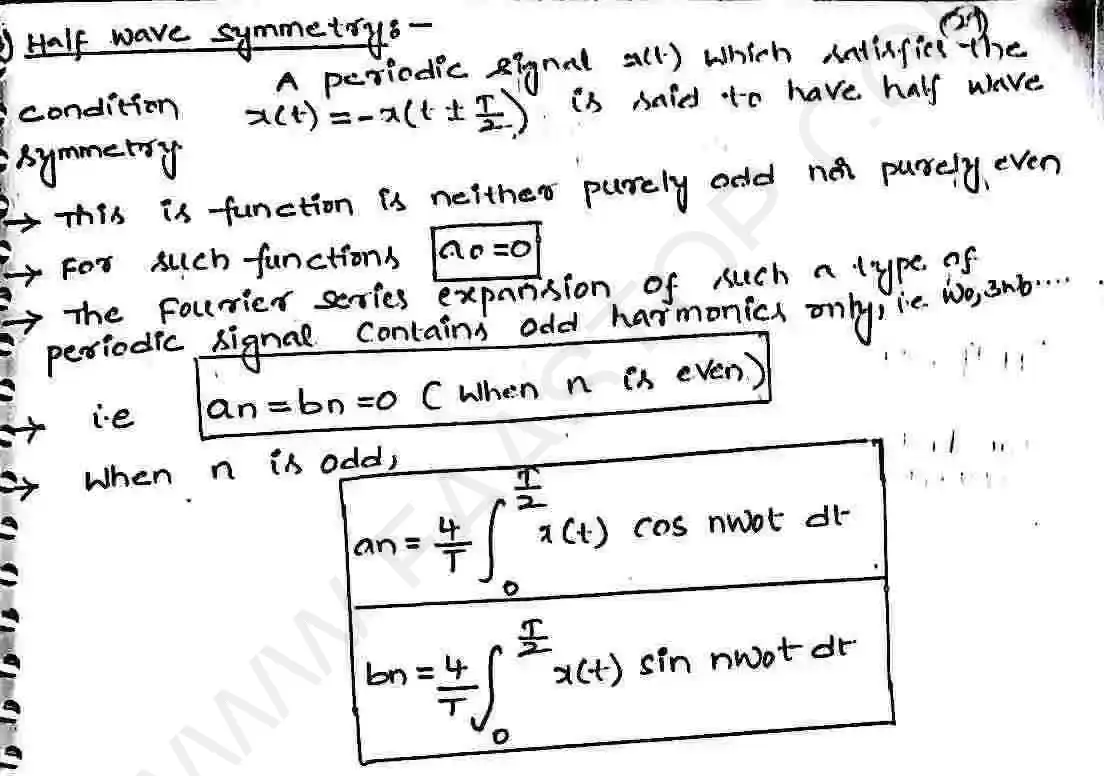 ) Half wave symmetry:-
(21)
A periodic signal x(t) which satisfies the
condition x(t) = -x(t ± T/2) is said to have half wave
symmetry
→ This is function is neither purely odd nor purely even
→ For such functions a0 = 0
→ The Fourier series expansion of such a type of
periodic signal contains odd harmonics only, i.e w0, 3w0....
→ i.e an = bn = 0 ( when n is even)
→ When n is odd,
an = 4/T ∫0^T/2 x(t) cos nw0t dt
bn = 4/T ∫0^T/2 x(t) sin nw0t dt